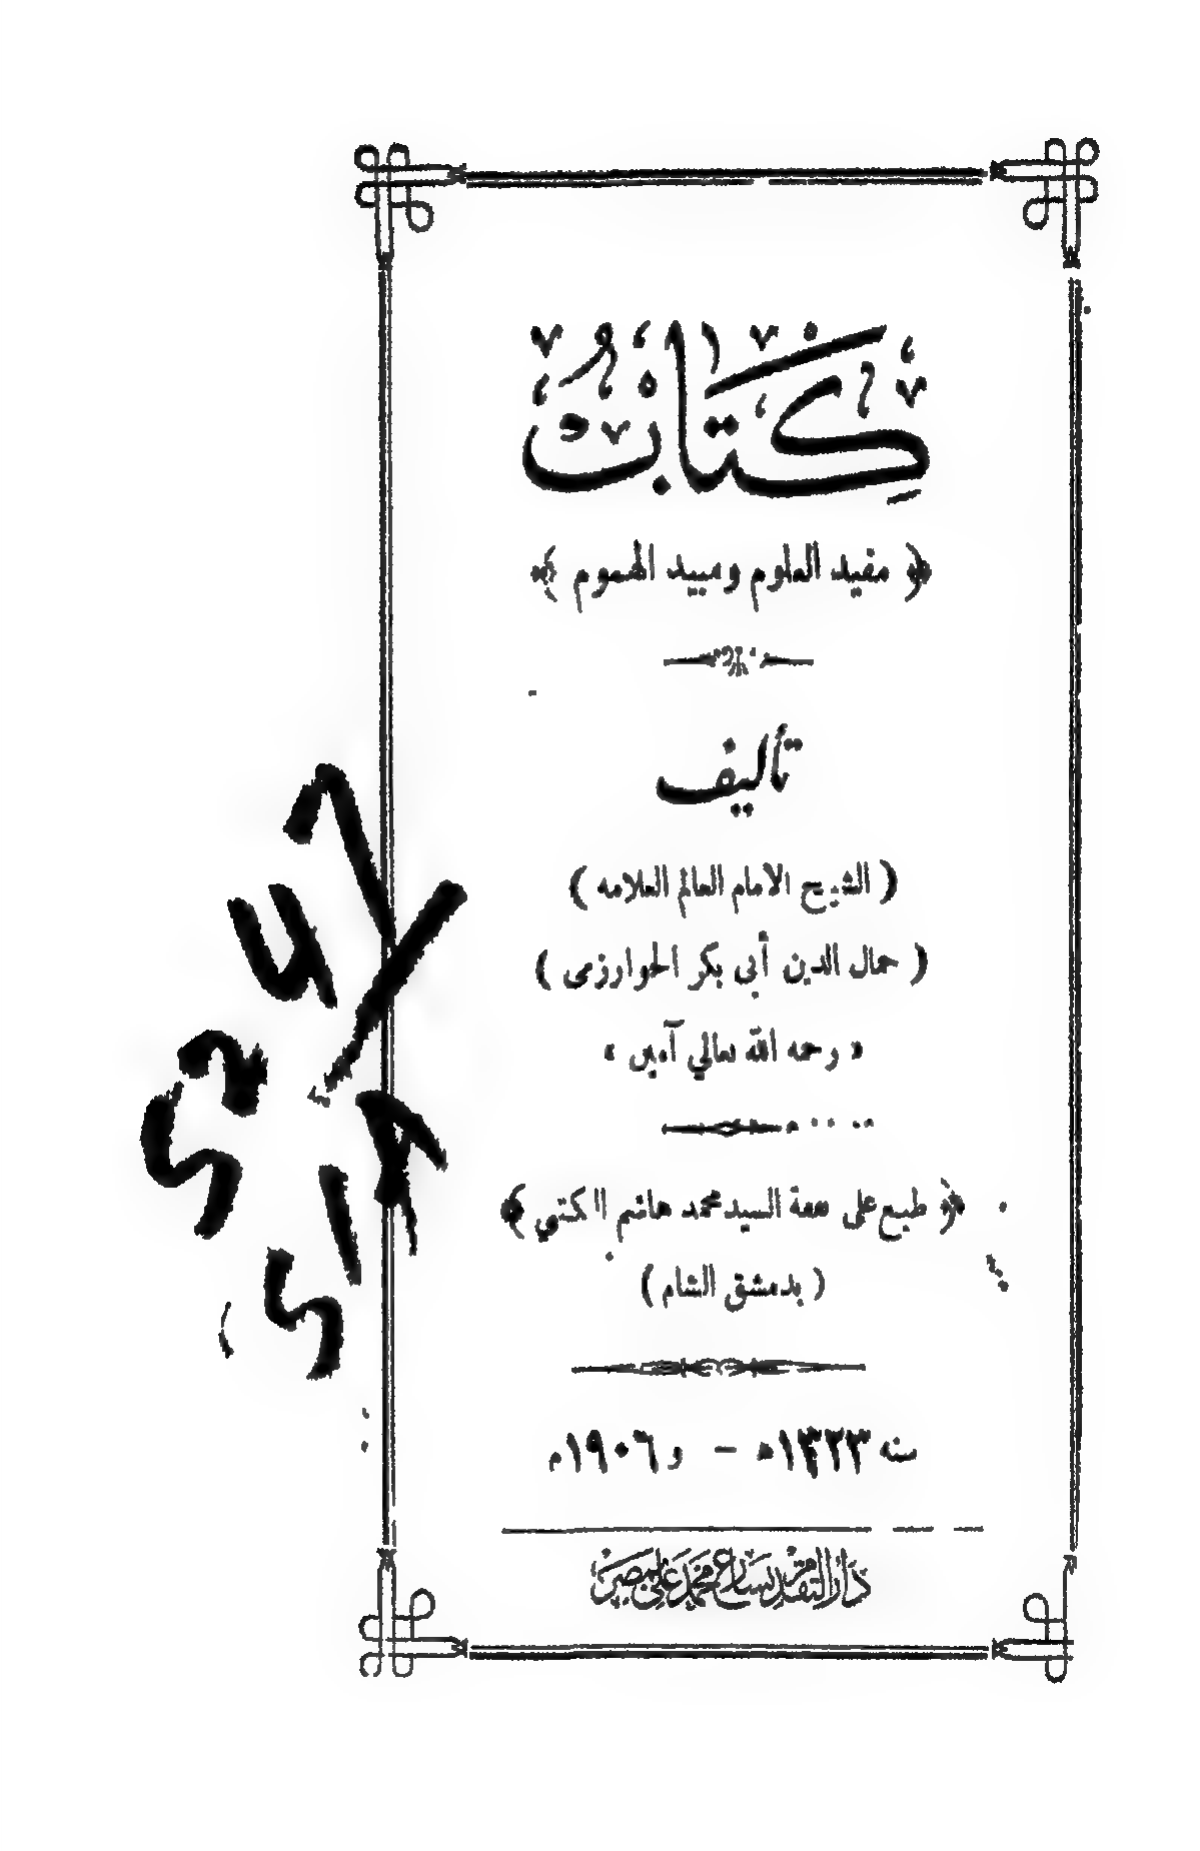 كِتَابُ
﴿ مفيد العلوم ومبيد الهموم ﴾
تأليف
( الشيخ الامام العالم العلامه )
( جمال الدين أبى بكر الخوارزمى )
« رحمه الله تعالي آمين »
﴿ طبع على نفقة السيد محمد هاشم الكتبي ﴾
( بدمشق الشام )
سنه ١٣٢٣ه – و ١٩٠٦م
دار التقدم بشارع محمد علي بمصر